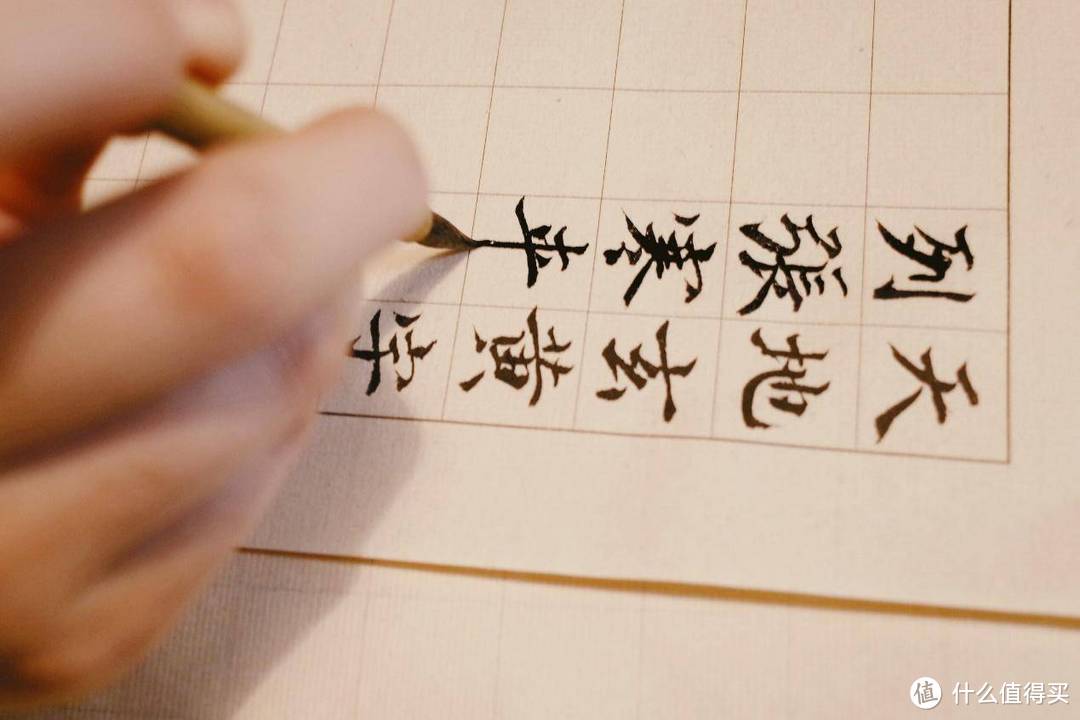 天地玄黄宇
列張寒
值 什么值得买